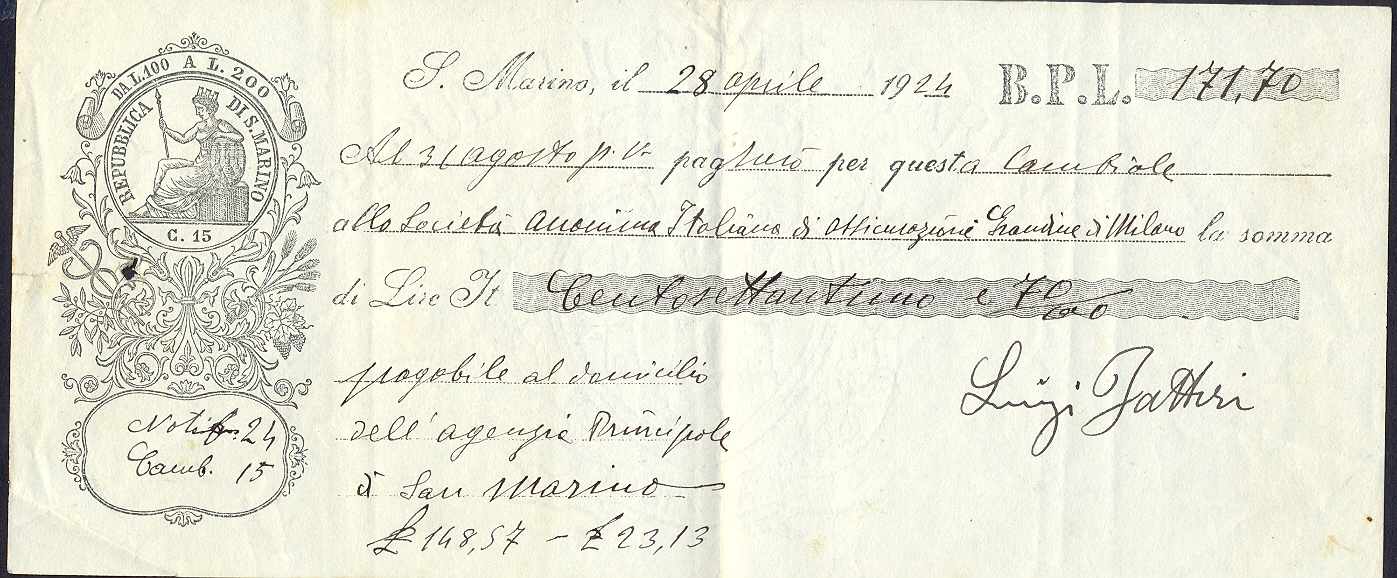 DA L.100 A L. 200
REPUBBLICA DI S. MARINO
C. 15
S. Marino, il 28 aprile 1924 B.P.L. 171,70
Al 31 agosto p. pagherò per questa Cambiale
alla Società Anonima Italiana di Assicurazione Grandine di Milano la somma
di Lire It. Centosettantuno e 70/00
Luigi
pagabile al domicilio
dell'agenzia Principale
di San Marino
£ 148,57 - £ 23,13
24
Camb. 15